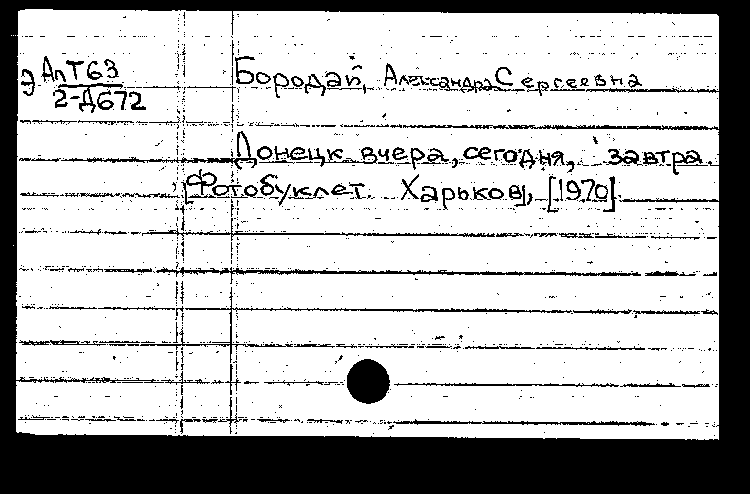 Э АпТ63
2-Д672
Бородай, Александра Сергеевна
Донецк вчера, сегодня, завтра.
[Фотобуклет. Харьков], [1970].